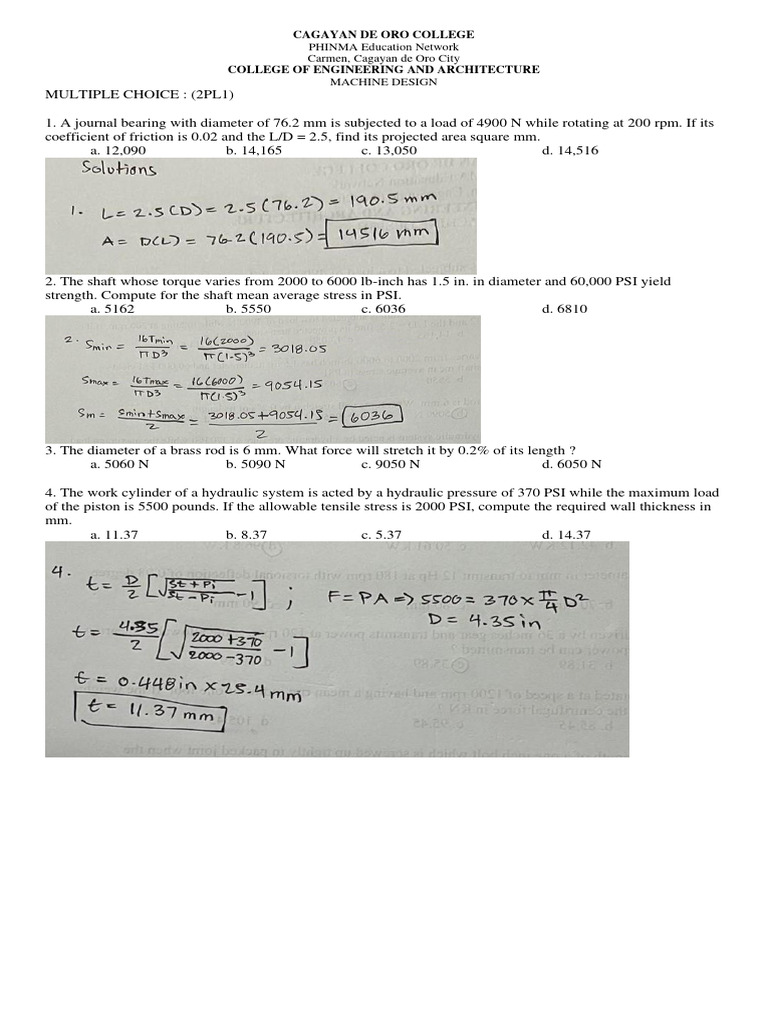 CAGAYAN DE ORO COLLEGE
PHINMA Education Network
Carmen, Cagayan de Oro City
COLLEGE OF ENGINEERING AND ARCHITECTURE
MACHINE DESIGN
MULTIPLE CHOICE : (2PL1)
1. A journal bearing with diameter of 76.2 mm is subjected to a load of 4900 N while rotating at 200 rpm. If its
coefficient of friction is 0.02 and the L/D = 2.5, find its projected area square mm.
a. 12,090 b. 14,165 c. 13,050 d. 14,516
Solutions
1. L = 2.5(D) = 2.5(76.2) = 190.5 mm
A = D(L) = 76.2(190.5) = 14516 mm
2. The shaft whose torque varies from 2000 to 6000 lb-inch has 1.5 in. in diameter and 60,000 PSI yield
strength. Compute for the shaft mean average stress in PSI.
a. 5162 b. 5550 c. 6036 d. 6810
2. Smin = 16Tmin/πD³ = 16(2000)/π(1.5)³ = 3018.05
Smax = 16Tmax/πD3 = 16(6000)/π(1.5)³ = 9054.15
Sm = Smin+Smax/2 = 3018.05+9054.15/2 = 6036
3. The diameter of a brass rod is 6 mm. What force will stretch it by 0.2% of its length ?
a. 5060 N b. 5090 N c. 9050 N d. 6050 N
4. The work cylinder of a hydraulic system is acted by a hydraulic pressure of 370 PSI while the maximum load
of the piston is 5500 pounds. If the allowable tensile stress is 2000 PSI, compute the required wall thickness in
mm.
a. 11.37 b. 8.37 c. 5.37 d. 14.37
4. t = D/2 [√(St + Pi/St - Pi) - 1] ; F = PA => 5500 = 370 x π/4 D²
D = 4.35 in
t = 4.35/2 [√(2000 + 370/2000 - 370) - 1]
t = 0.448 in x 25.4 mm
t = 11.37 mm